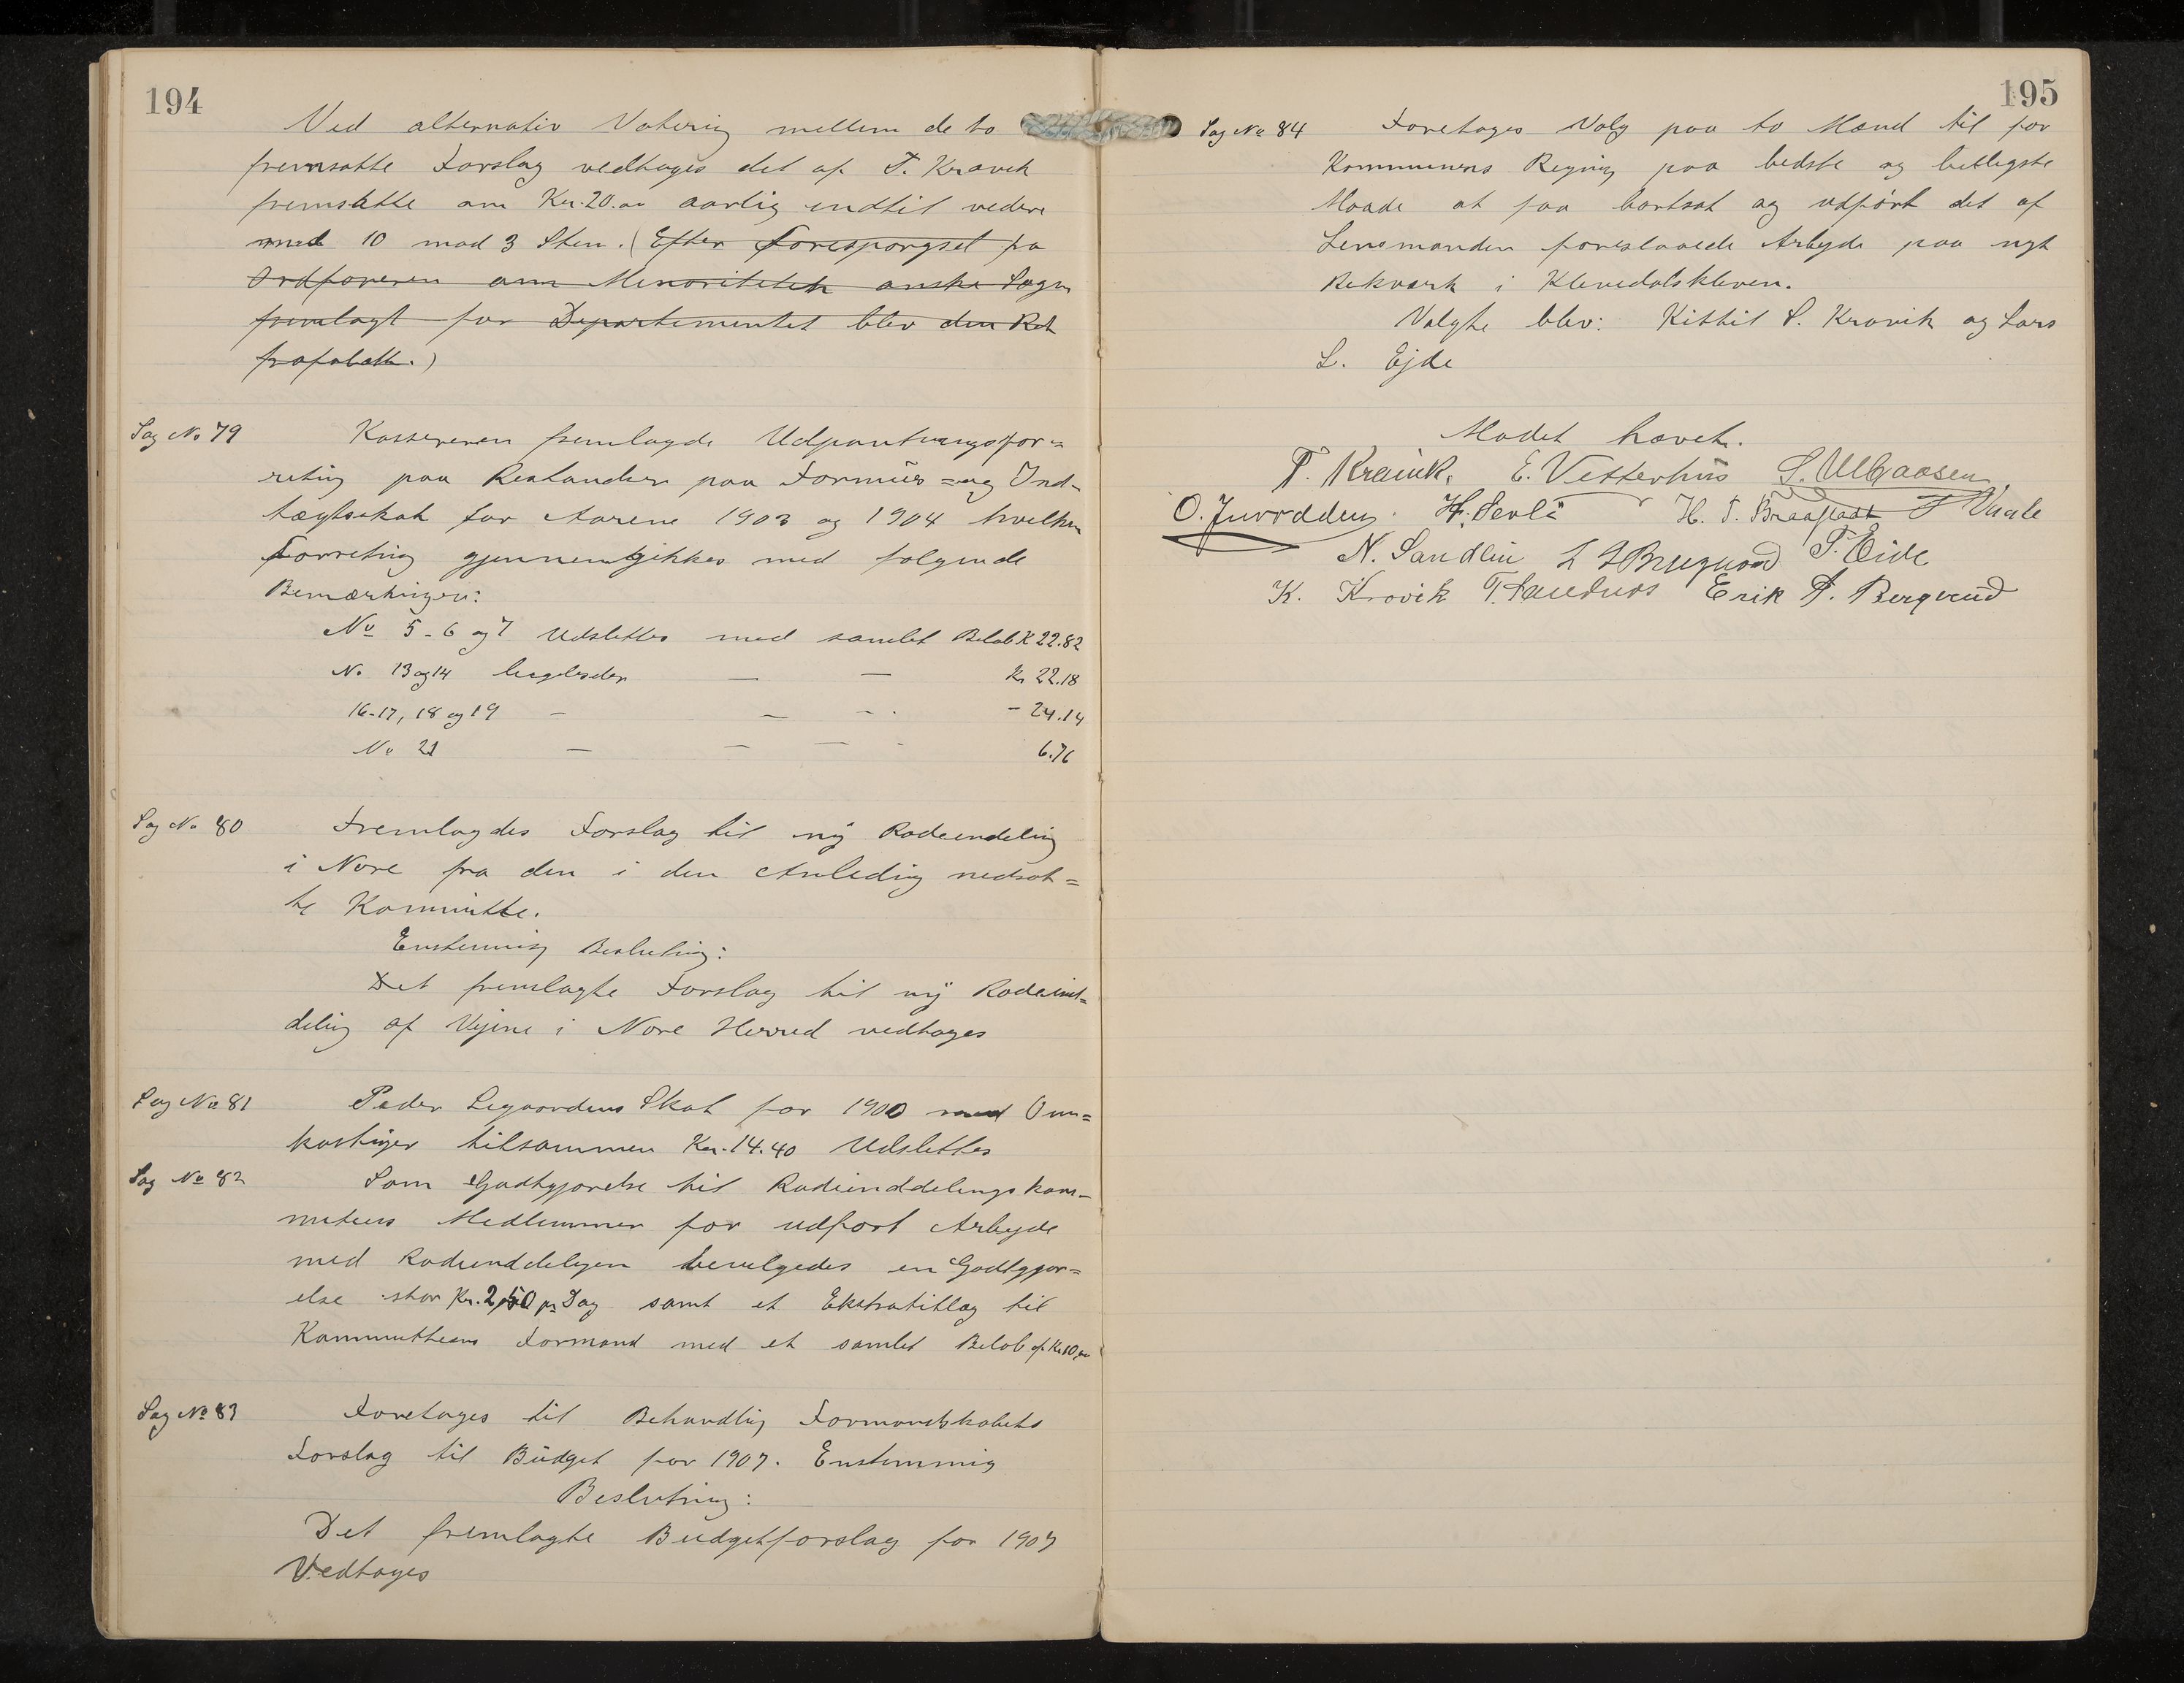 194
Ved alternativ Votering mellem de to
fremsatte Forslag vedtages det af T. Kravik
fremsatte om Kr. 20.00 aarlig indtil videre
med 10 mod 3 Stem. (Efter Forespørgsel fra
Ordføreren om Minoriteten ønske Sagen
fremlagt for Departementet blev den Ret
frafaldt.)
Sag No 79
Kassereren fremlagde Udpantningsfor=
retning paa Restancer paa Formües = og Ind-
tægtsskat for Aarene 1903 og 1904 hvilken
Forretning gjennemgikkes med følgende
Bemærkninger:
No 5-6 og 7 Udslettes med samlet Beløb K 22.82
No. 13 og 14 ligeledes — — Kr 22.18
16-17, 18 og 19 — — - . - 24.14
No 21 — — — - 6.76
Sag No 80
Fremlagdes Forslag til ny Rodeindeling
i Nore fra den i den Anledning nedsat=
te Kommitte.
Enstemmig Beslutning:
Det fremlagte Forslag til ny Rodeind=
deling af Vejene i Nore Herred vedtages
Sag No 81
Peder Legaardens Skat for 1900 med Om=
kostninger tilsammen Kr. 14.40 Udslettes
Sag No 82
Som Godtgjørelse til Rodeinddelingskom-
miteens Medlemmer for udført Arbeide
med Rodeinddelingen bevilgedes en Godtgjør=
else stor Kr. 2,50 pr Dag samt et Ekstratillæg til
Kommitteens Formand med et samlet Beløb af Kr 10,00
Sag No 83
Foretages til Behandling Formandskabets
Forslag til Büdget for 1907. Enstemmig
Beslutning:
Det fremlagte Budgetforslag for 1907
Vedtages
195
Sag No 84
Foretages Valg paa to Mænd til for
Kommunens Regning paa bedste og billigste
Maade at faa bortsat og udført det af
Lensmanden foreslaaede Arbeide paa nyt
Rekværk i Klevedalskleven.
Valgte blev: Kittil S. Kravik og Lars
L. Ejde
Mødet hævet.
T. Kravik. E. Vetterhus S. Ulbaasen
O. Juvodden. H. Sevle H. T. Vaale
N. Sandlin L L Eide
K. Kravik T. Erik A. Bergerud